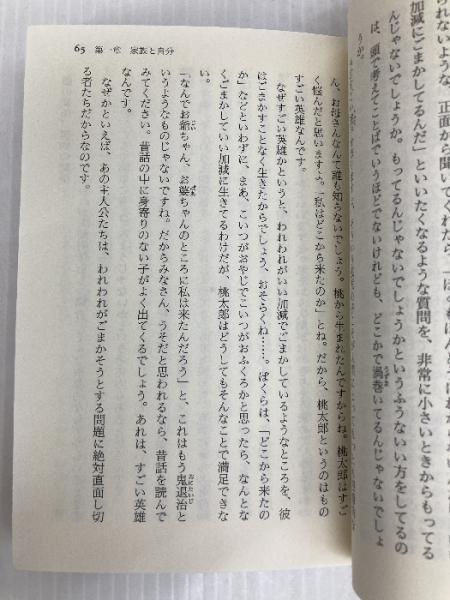 られないような、正面から聞いてくれたら、
加減にごまかしてるんだ」といいたくなるような質問を、非常に小さいときからもってる
んじゃないでしょうか。もってるんじゃないでしょうかというふうないい方をしてるの
は、頭で考えてことばでいうほどでないけれども、どこかで渦巻いてるんじゃないでしょ
うか。
65 第一章 家族と自分
ん、お母さんなんて誰も知らないでしょう。桃から生まれたんですからね。桃太郎はすご
く悩んだと思いますよ。「私はどこから来たのか」とね。だから、桃太郎というのはもの
すごい英雄なんです。
なぜすごい英雄かというと、われわれがいい加減でごまかしているようなところを、彼
はごまかすことなく生きたからでしょう、おそらくね……。ぼくらは、「どこから来たの
か」などといわずに、まあ、こいつがおやじでこいつがおふくろかと思ったら、なんとな
くごまかしていい加減に生きてるわけだが、桃太郎はどうしてもそんなことで満足できな
い。
「なんでお爺ちゃん、お婆ちゃんのところに私は来たんだろう」と、これはもう鬼退治と
いうようなものじゃないですね。だからみなさん、うそだと思われるなら、昔話を読んで
みてください。昔話の中に身寄りのない子がよく出てくるでしょう。あれは、すごい英雄
なんです。
なぜかといえば、あの主人公たちは、われわれがごまかそうとする問題に絶対直面し切
る者たちだからなのです。